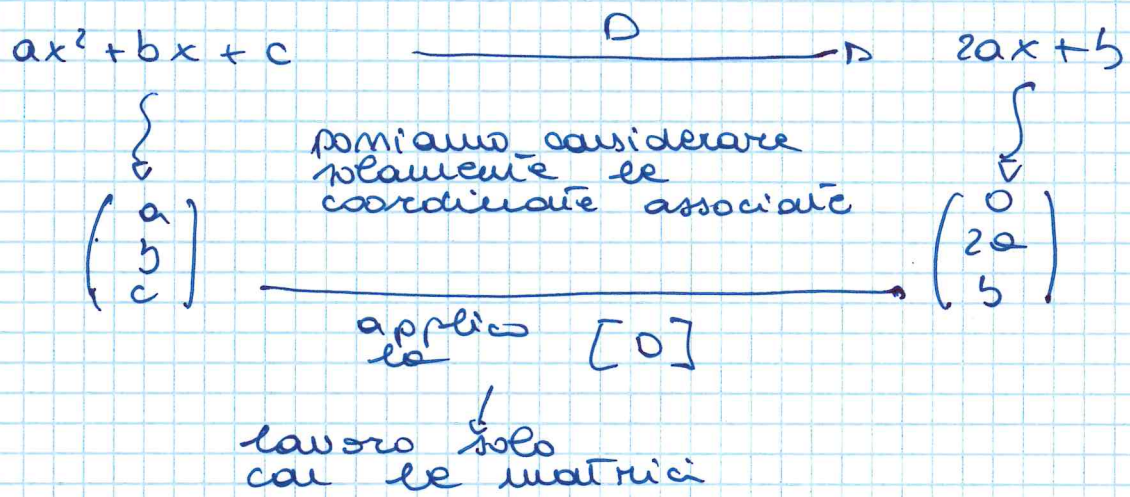 ax² + bx + c D 2ax + b
possiamo considerare
solamente le
coordinate associate
( a b c ) ( 0 2a b )
applico
la [D]
lavoro solo
con le matrici